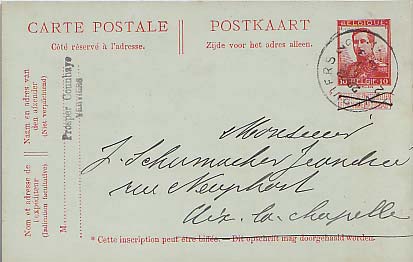 CARTE POSTALE
POSTKAART
Côté réservé à l'adresse.
Zijde voor het adres alleen.
BELGIQUE
10 BELGIË 10
Naam en adres van
den afzender
(Niet verplichtend)
Nom et adresse de
l'expéditeur
(Indication facultative)
Prosper
Verviers
M.
Monsieur
J. Schumacher
rue
Aix-la-chapelle
* Cette inscription peut être biffée. — Dit opschrift mag doorgehaald worden.